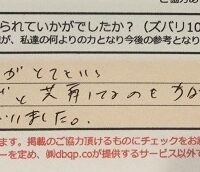 られていかがでしたか?(ズバリ10
が、私達の何よりの力となり今後の参考となり
がとてもいい
と共有してるのも
いました。
ます。掲載のご協力頂けるものにチェックをお
ーを定め、㈱dbqp.coが提供するサービス以外